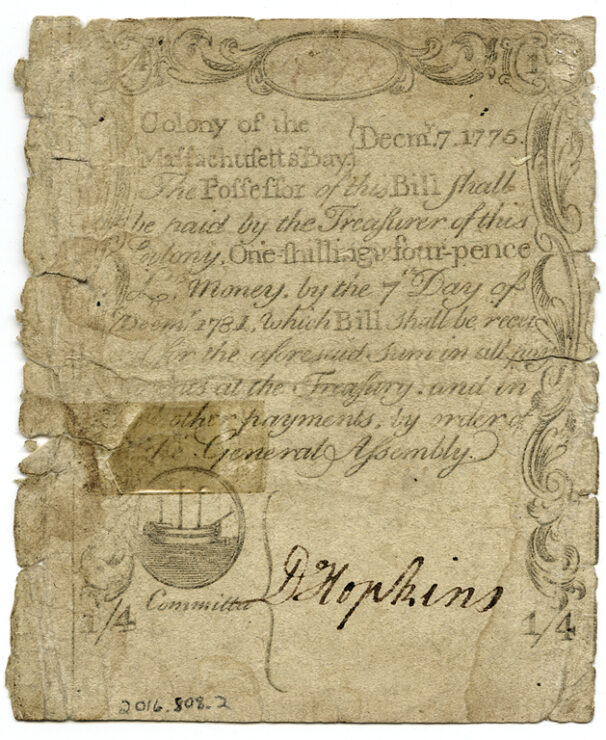 Colony of the
Massachusetts Bay
Decmr. 7. 1775.
The Possessor of this Bill shall
be paid by the Treasurer of this
Colony, One-shilling & four-pence
L. Money, by the 7th Day of
Decemr. 1781, which Bill shall be recei
for the aforesaid sum in all pay
ments at the Treasury. and in
other payments, by order of
the General Assembly.
Committee
D Hopkins
1/4
1/4
2016.808.2